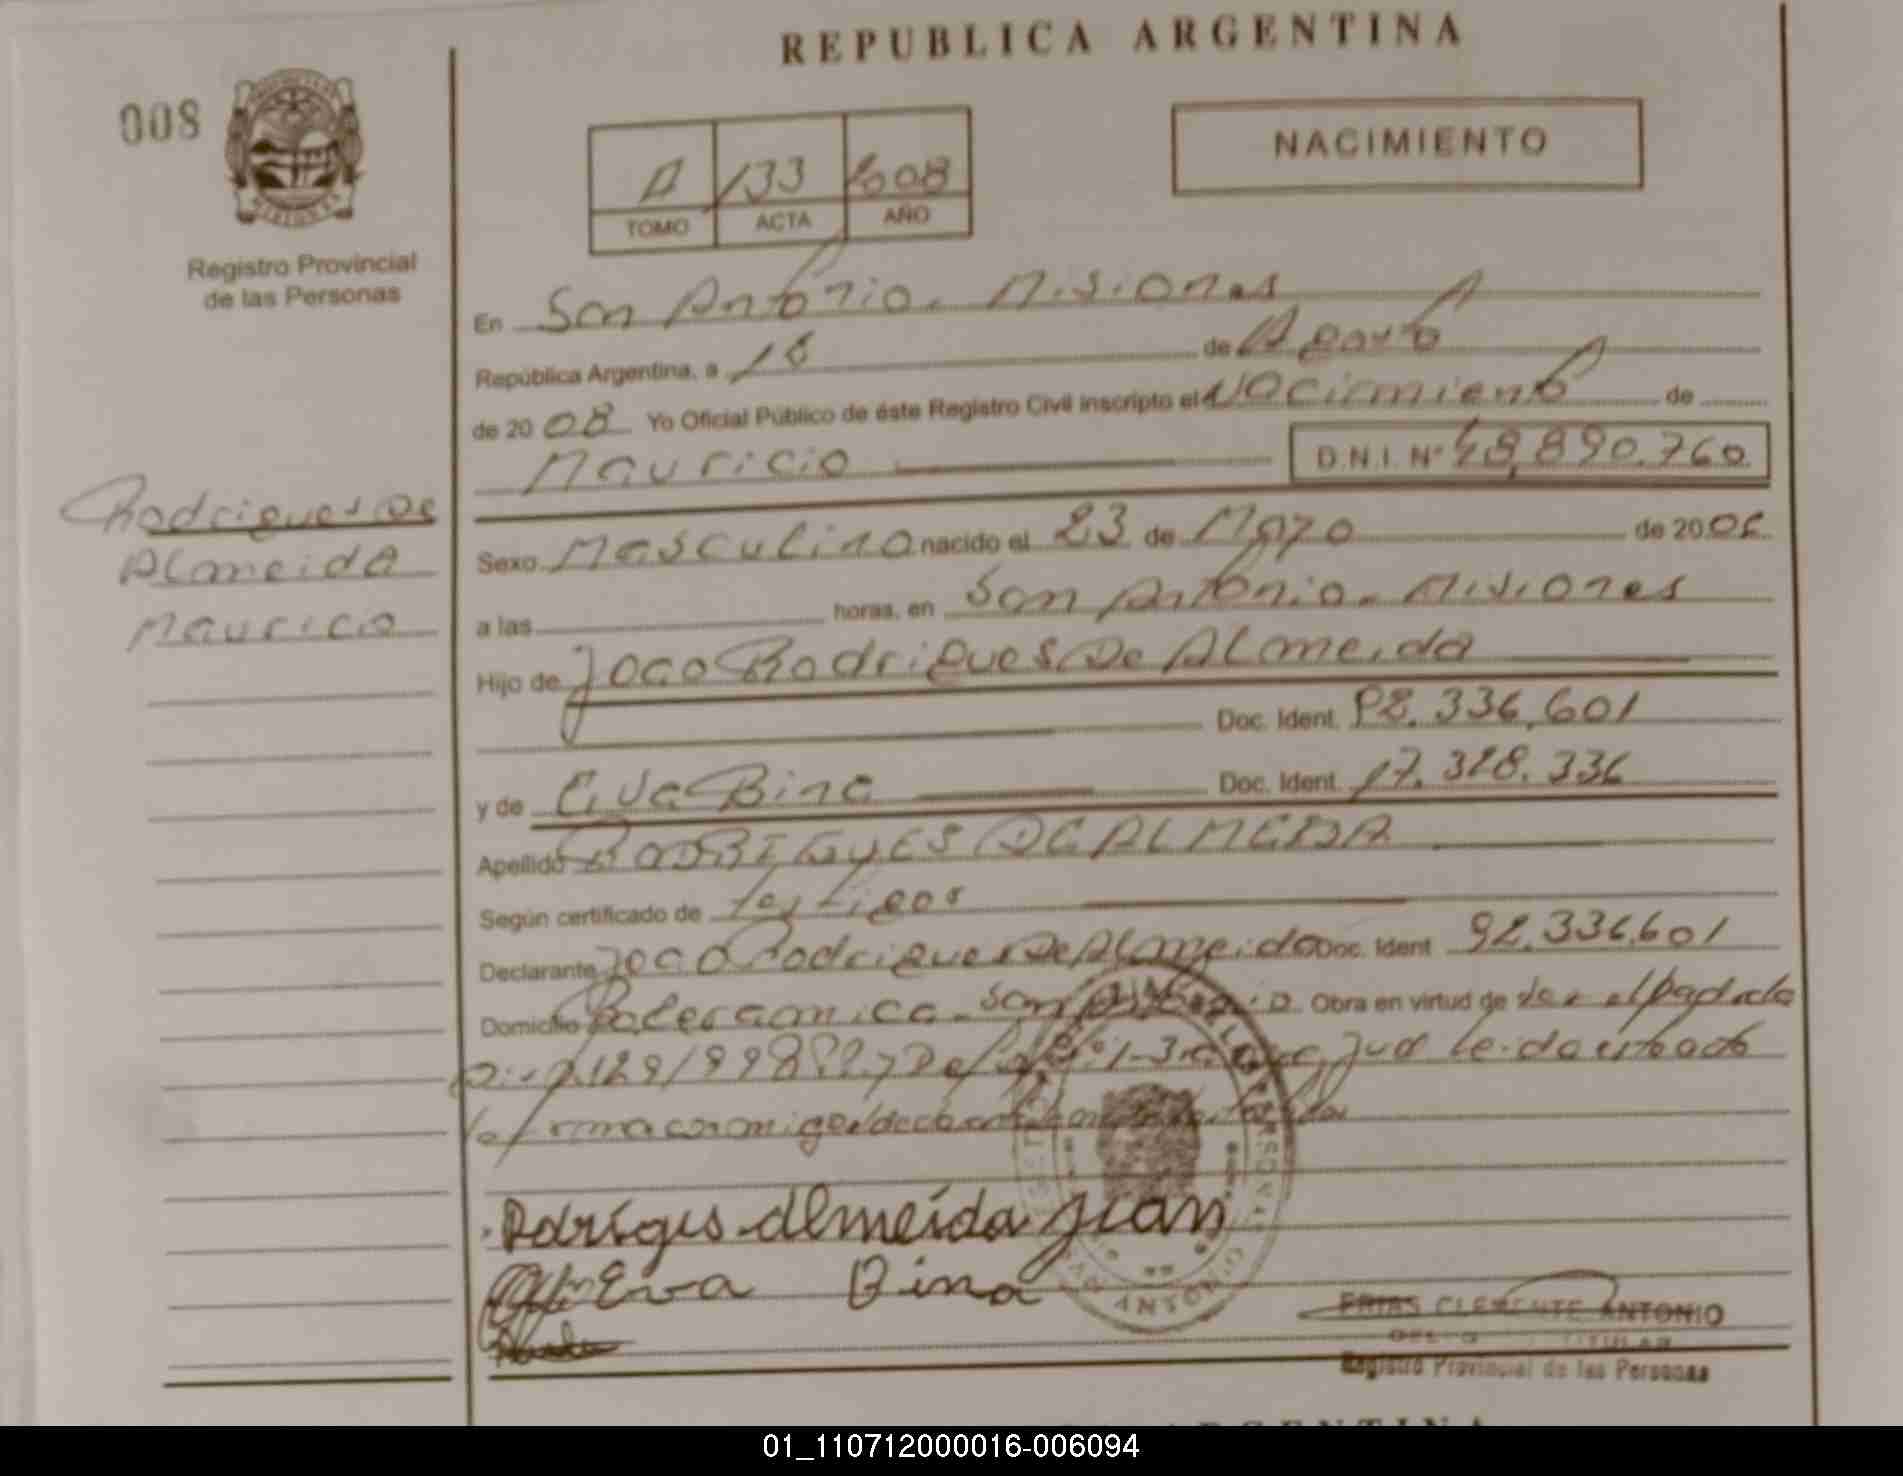 REPUBLICA ARGENTINA
008
NACIMIENTO
A 133 2008
TOMO ACTA AÑO
Registro Provincial
de las Personas
En San Antonio - Misiones
República Argentina, a 18 de Agosto
de 2008 Yo Oficial Público de éste Registro Civil inscripto el Nacimiento de
Mauricio D.N.I. Nº 48.890.760
Rodrigues De
Almeida
Mauricio
Sexo Masculino nacido el 23 de Marzo de 20
a las horas, en San Antonio - Misiones
Hijo de Joao Rodrigues De Almeida
Doc. Ident. 92.336.601
y de Eva Bina Doc. Ident. 17.328.336
Apellido RODRIGUES DE ALMEIDA
Según certificado de testigos
Declarante Joao Rodrigues De Almeida Doc. Ident 92.336.601
Domicilio San Antonio Obra en virtud de
Leida
Rodrigues Almeida
Eva Bina
SAN ANTONIO
FRIAS CLEMENTE ANTONIO
TITULAR
Registro Provincial de las Personas
ARGENTINA
01_110712000016-006094